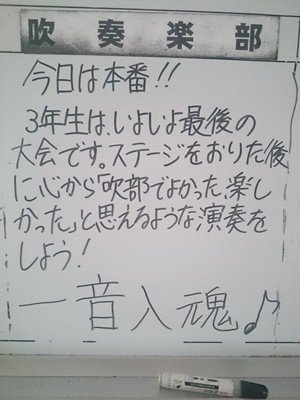 吹奏楽部
今日は本番!!
3年生は、いよいよ最後の
大会です。ステージをおりた後
に心から「吹部でよかった、楽し
かった」と思えるような演奏を
しよう!
一音入魂♪